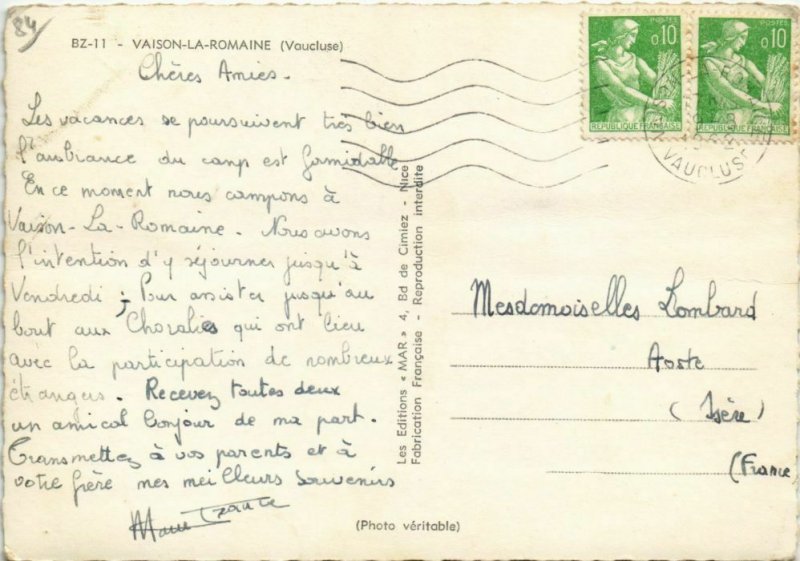 84
BZ-11 - VAISON-LA-ROMAINE (Vaucluse)
POSTES
0,10
REPUBLIQUE FRANÇAISE
POSTES
0,10
REPUBLIQUE FRANÇAISE
VAUCLUSE
Chères Amies.
Les vacances se poursuivent très bien
l'ambiance du camp est formidable
En ce moment nous campons à
Vaison-La-Romaine. Nous avons
l'intention d'y séjourner jusqu'à
Vendredi ; Pour assister jusqu'au
bout aux Choralies qui ont lieu
avec la participation de nombreux
étrangers. Recevez toutes deux
un amical bonjour de ma part.
Transmettez à vos parents et à
votre frère mes meilleurs souvenirs
Les Editions « MAR » 4, Bd de Cimiez - Nice
Fabrication Française - Reproduction interdite
Mesdemoiselles Lombard
Aoste
(Isère)
(France)
(Photo véritable)